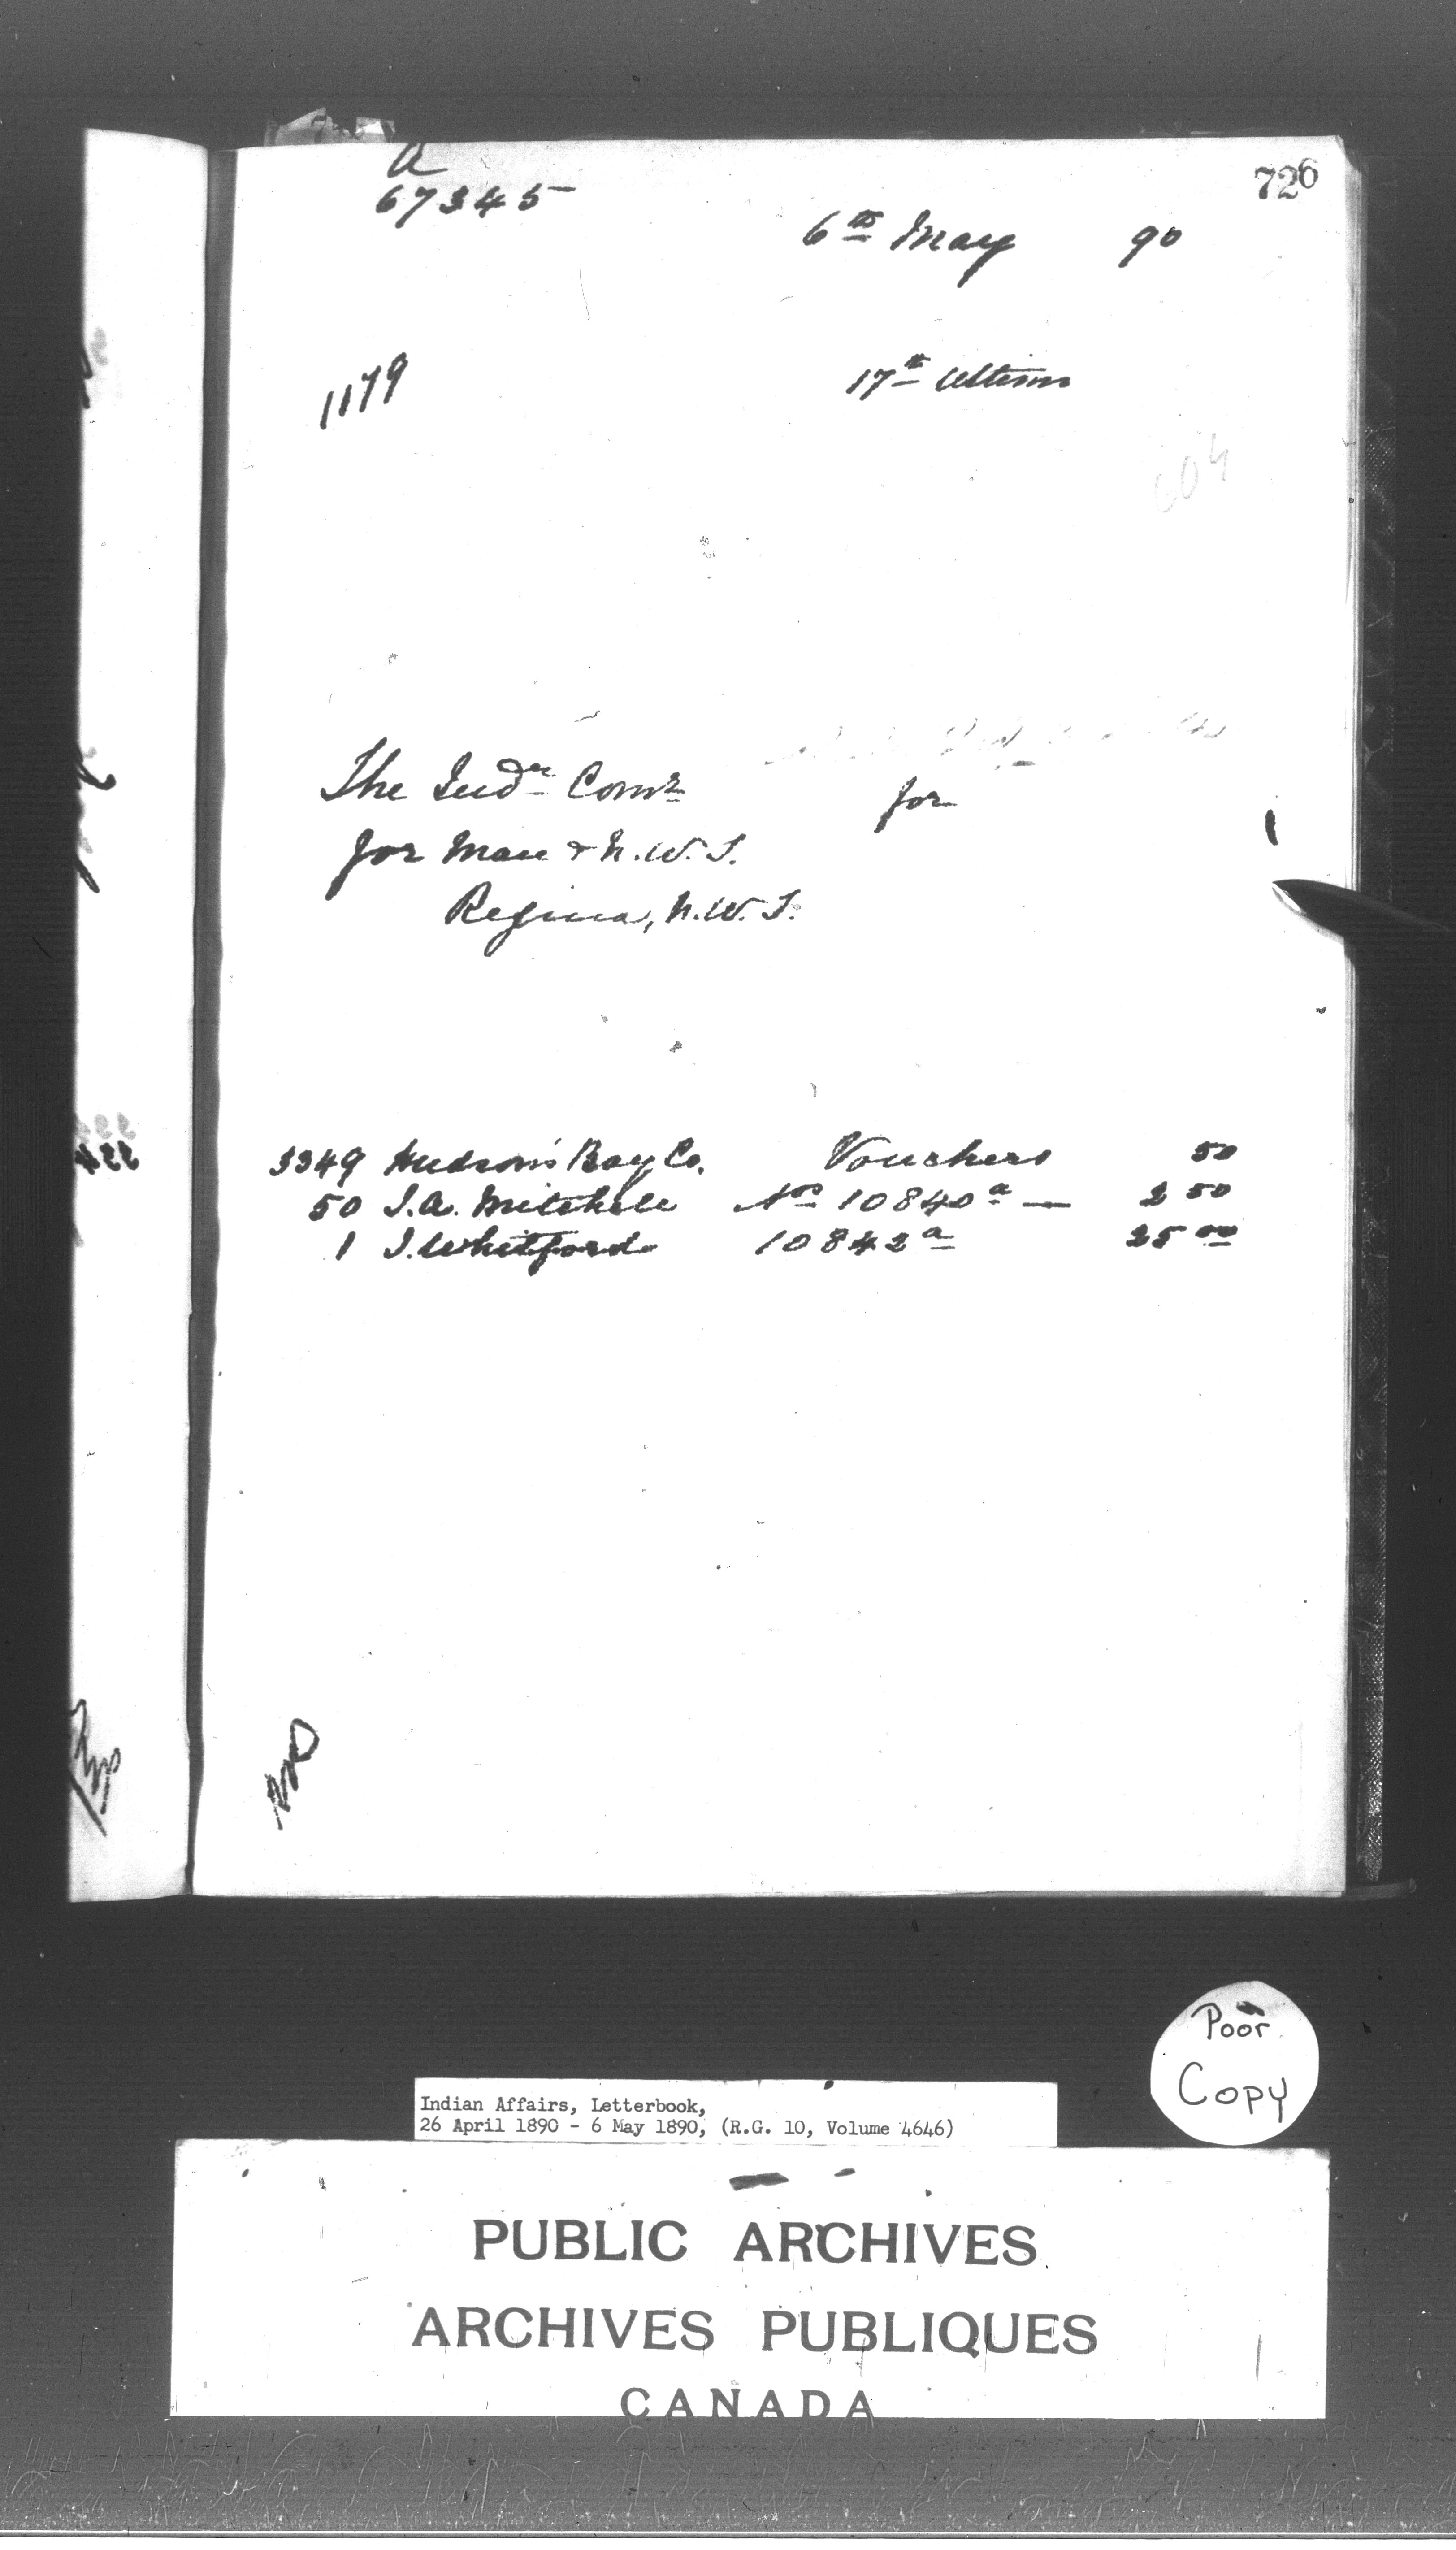 a
67345
726
6th May 90
1179
17th Ultimo
604
The Ind'n Comr
for
for Man & N.W.T.
Regina, N.W.T.
422
3349 Hudson's Bay Co. Vouchers 50
50 J.A. Mitchell Nos 10840a — 2 50
1 J. Whitford 10842a 25 00
Poor
Copy
Indian Affairs, Letterbook,
26 April 1890 - 6 May 1890, (R.G. 10, Volume 4646)
PUBLIC ARCHIVES
ARCHIVES PUBLIQUES
CANADA